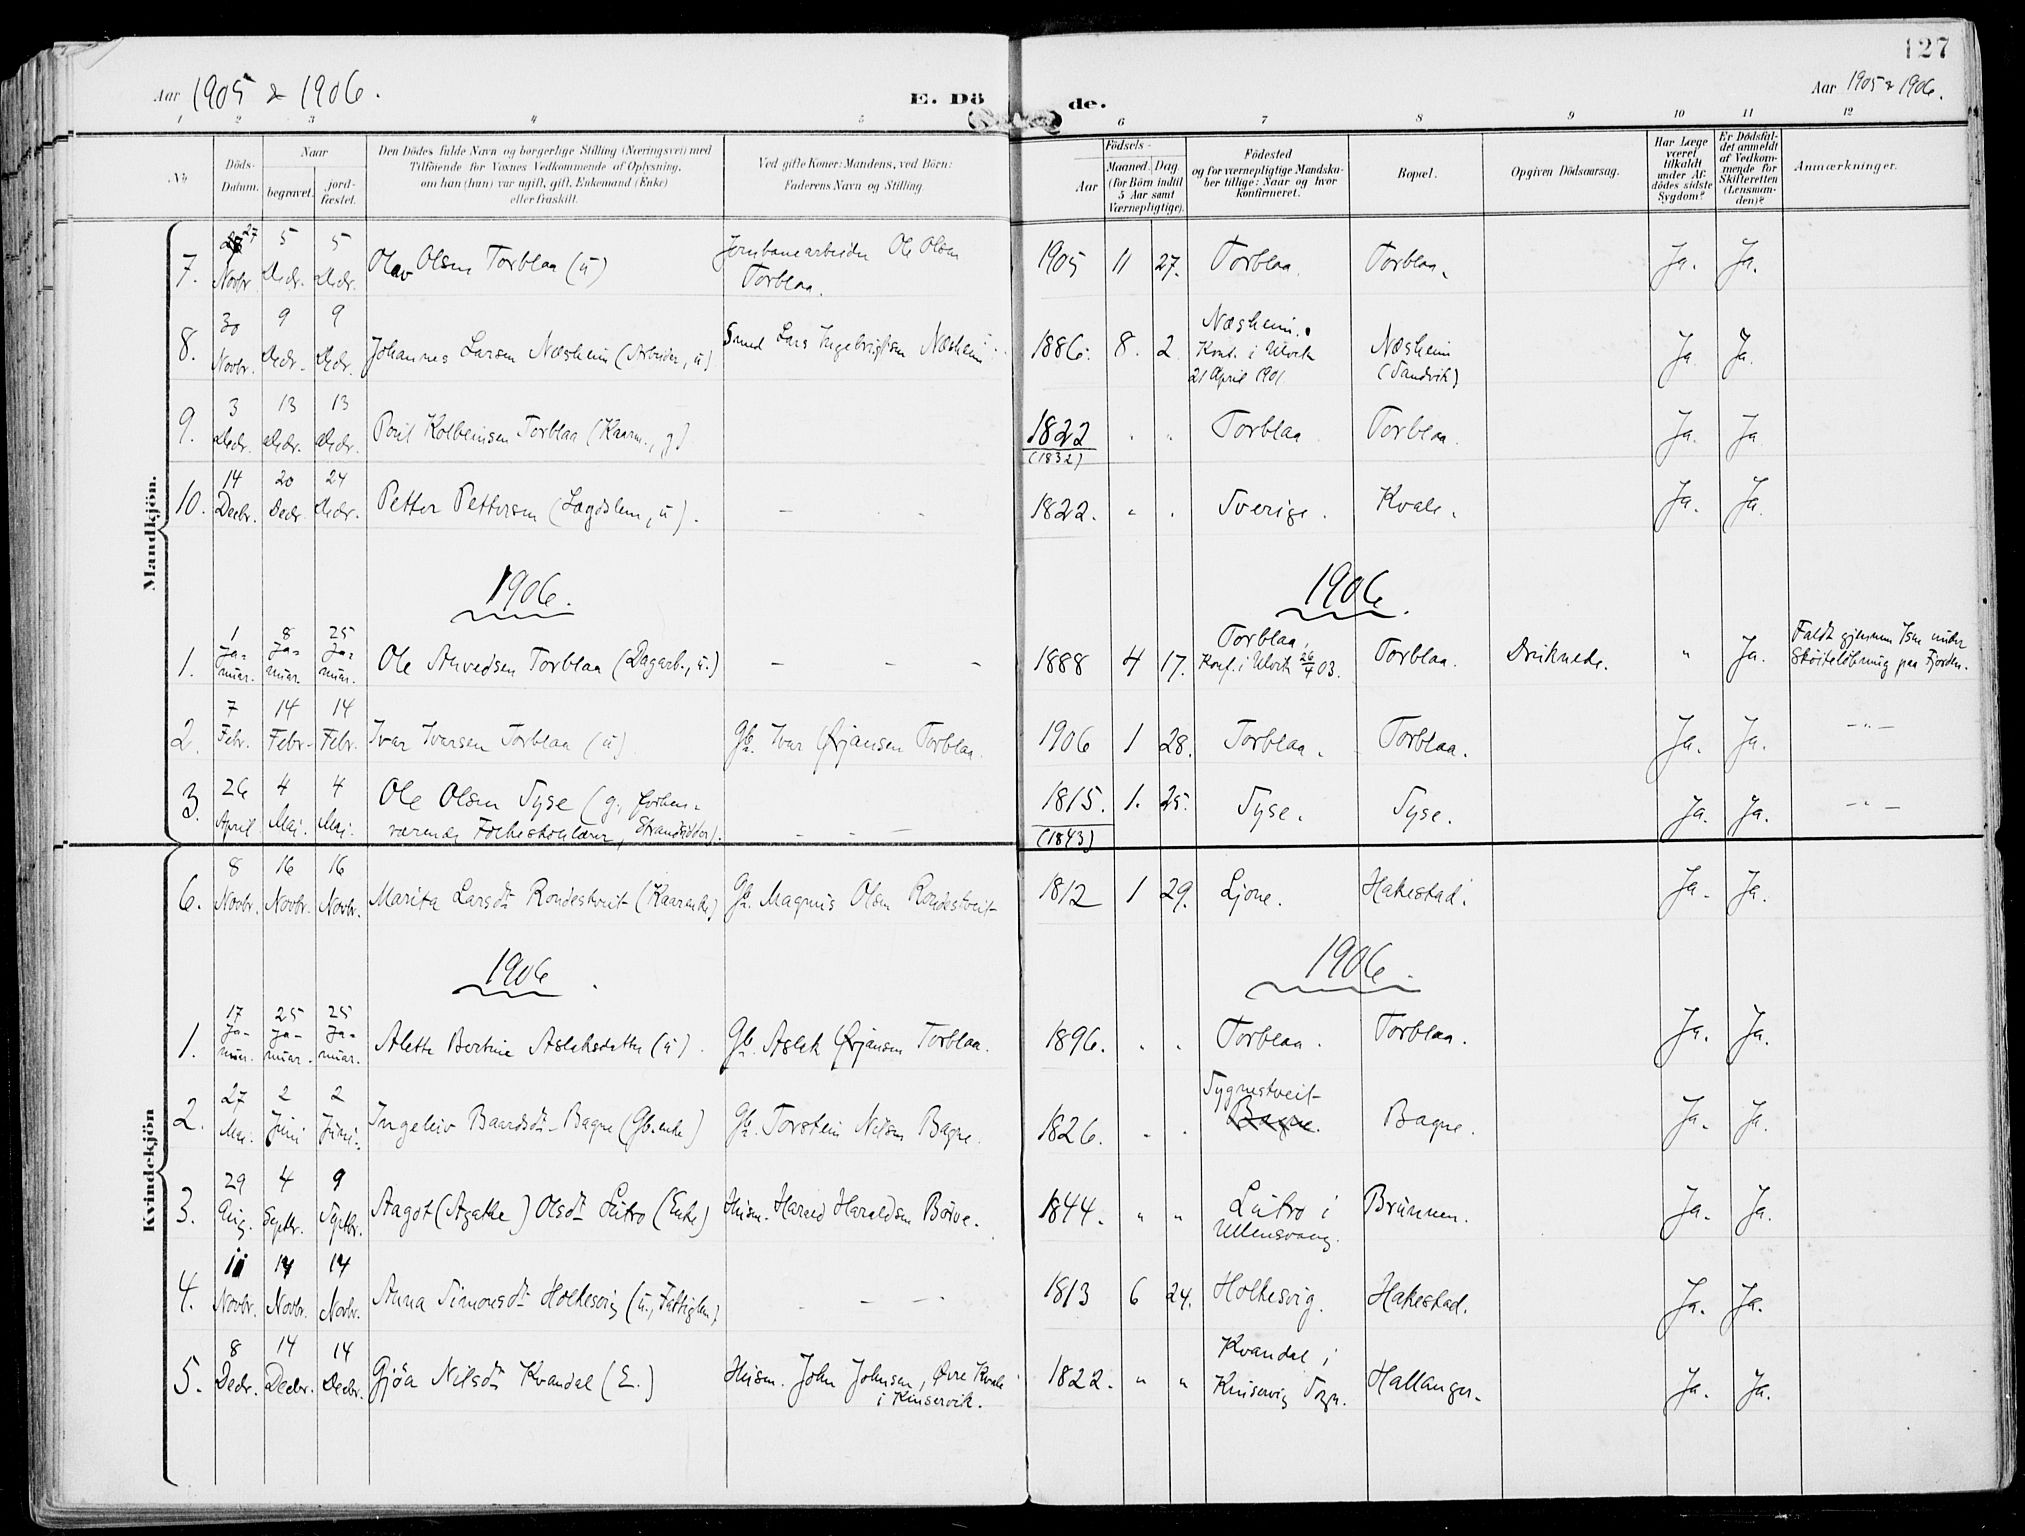 127
Aar 1905 & 1906.
E. Dö
de.
Aar 1905 & 1906.
1 2 3 4 5 6 7 8 9 10 11 12
No
Döds-
Datum.
Naar
begravet.
jord-
fæstet.
Den Dödes fulde Navn og borgerlige Stilling (Næringsvei) med
Tilföiende for Voxnes Vedkommende af Oplysning,
om han (hun) var ugift, gift, Enkemand (Enke)
eller fraskilt.
Ved gifte Koner: Mandens, ved Börn:
Faderens Navn og Stilling.
Födsels-
Aar
Maaned.
Dag.
(for Börn indtil
5 Aar samt
Værnepligtige).
Födested
og for værnepligtige Mandska-
ber tillige: Naar og hvor
konfirmeret.
Bopæl.
Opgiven Dödsaarsag.
Har Læge
været
tilkaldt
under Af-
dödes sidste
Sygdom?
Er Dödsfal-
det anmeldt
af Vedkom-
mende for
Skifteretten
(Lensman-
den)?
Anmærkninger.
Mandkjön.
7. 27 Novbr. 5 Decbr. 5 Decbr. Olav Olsen Torblaa (u) Jernbanearbeider Ole Olsen
Torblaa. 1905 11 27. Torblaa. Torblaa. Ja. Ja.
8. 30 Novbr. 9 Decbr. 9 Decbr. Johannes Larsen Næsheim (Arbeider, u) Smed Lars Ingebrigtsen Næsheim. 1886. 8. 2. Næsheim.
Konf. i Ulvik
21 April 1901 Næsheim
(Sandvik) Ja. Ja.
9. 3 Decbr. 13 Decbr. 13 Decbr. Poul Kolbeinsen Torblaa (Kaarm., g) 1822
(1832) " " Torblaa Torblaa. Ja. Ja
10. 14 Decbr. 20 Decbr. 24 Decbr. Petter Pettersen (Lægdslem, u). - 1822. " " Sverige. Kvale. Ja. Ja.
1906. 1906.
1. 1 Ja-
nuar. 8 Ja-
nuar. 25 Ja-
nuar. Ole Anvedsen Torblaa (Dagarb., u.) - - - 1888 4 17. Torblaa.
Konf. i Ulvik 26/4 03. Torblaa. Druknede. " Ja. Faldt gjennem Isen under
Skøiteløbning paa Fjorden.
2. 7 Febr. 14 Febr. 14 Febr. Ivar Ivarsen Torblaa (u). Gb. Ivar Ørjansen Torblaa. 1906 1 28. Torblaa. Torblaa. Ja. Ja. - " -
3. 26 April 4 Mai. 4 Mai. Ole Olsen Syse (g., forhen-
værende Folkeskolelærer, Strandsidder). - - - 1815. 1. 25.
(1843) Syse. Syse. Ja. Ja. - " -
Kvindekjön
6. 8 Novbr. 16 Novbr. 16 Novbr. Marita Larsdt Rondestveit (Kaarenke) Gb. Magnus Olsen Rondestveit 1812 1 29. Ljone. Hakestad. Ja. Ja.
1906. 1906.
1. 17 Ja-
nuar. 25 Ja-
nuar. 25 Ja-
nuar. Alette Bertine Aslaksdatter (u). Gb. Aslak Ørjansen Torblaa. 1896. " " Torblaa. Torblaa. Ja. Ja.
2. 27 Mai. 2 Juni 2 Juni. Ingeleiv Baardsdt Bagne (Gb.enke) Gb. Torstein Nilsen Bagne. 1826. " " Sygnestveit
Bagne. Bagne. Ja. Ja.
3. 29 Aug. 4 Septbr. 9 Septbr. Aagot (Agathe) Olsdt Lutro (Enke) Husm. Harald Haraldsen Børve. 1844. " " Lutro i
Ullensvang. Brunnen. Ja. Ja.
4. 11 Novbr. 14 Novbr. 14 Novbr. Anna Simonsdt Holkesvig (u., Fattiglem) - - - 1813 6 24. Holkesvig. Hakestad. Ja. Ja.
5. 8 Decbr. 14 Decbr. 14 Decbr. Gjøa Nilsdt Kvandal (E.) Husm. John Johnsen, Øvre Kvale
i Kinservik. 1822. " " Kvandal i
Kinservig Sogn. Hallanger. Ja. Ja.